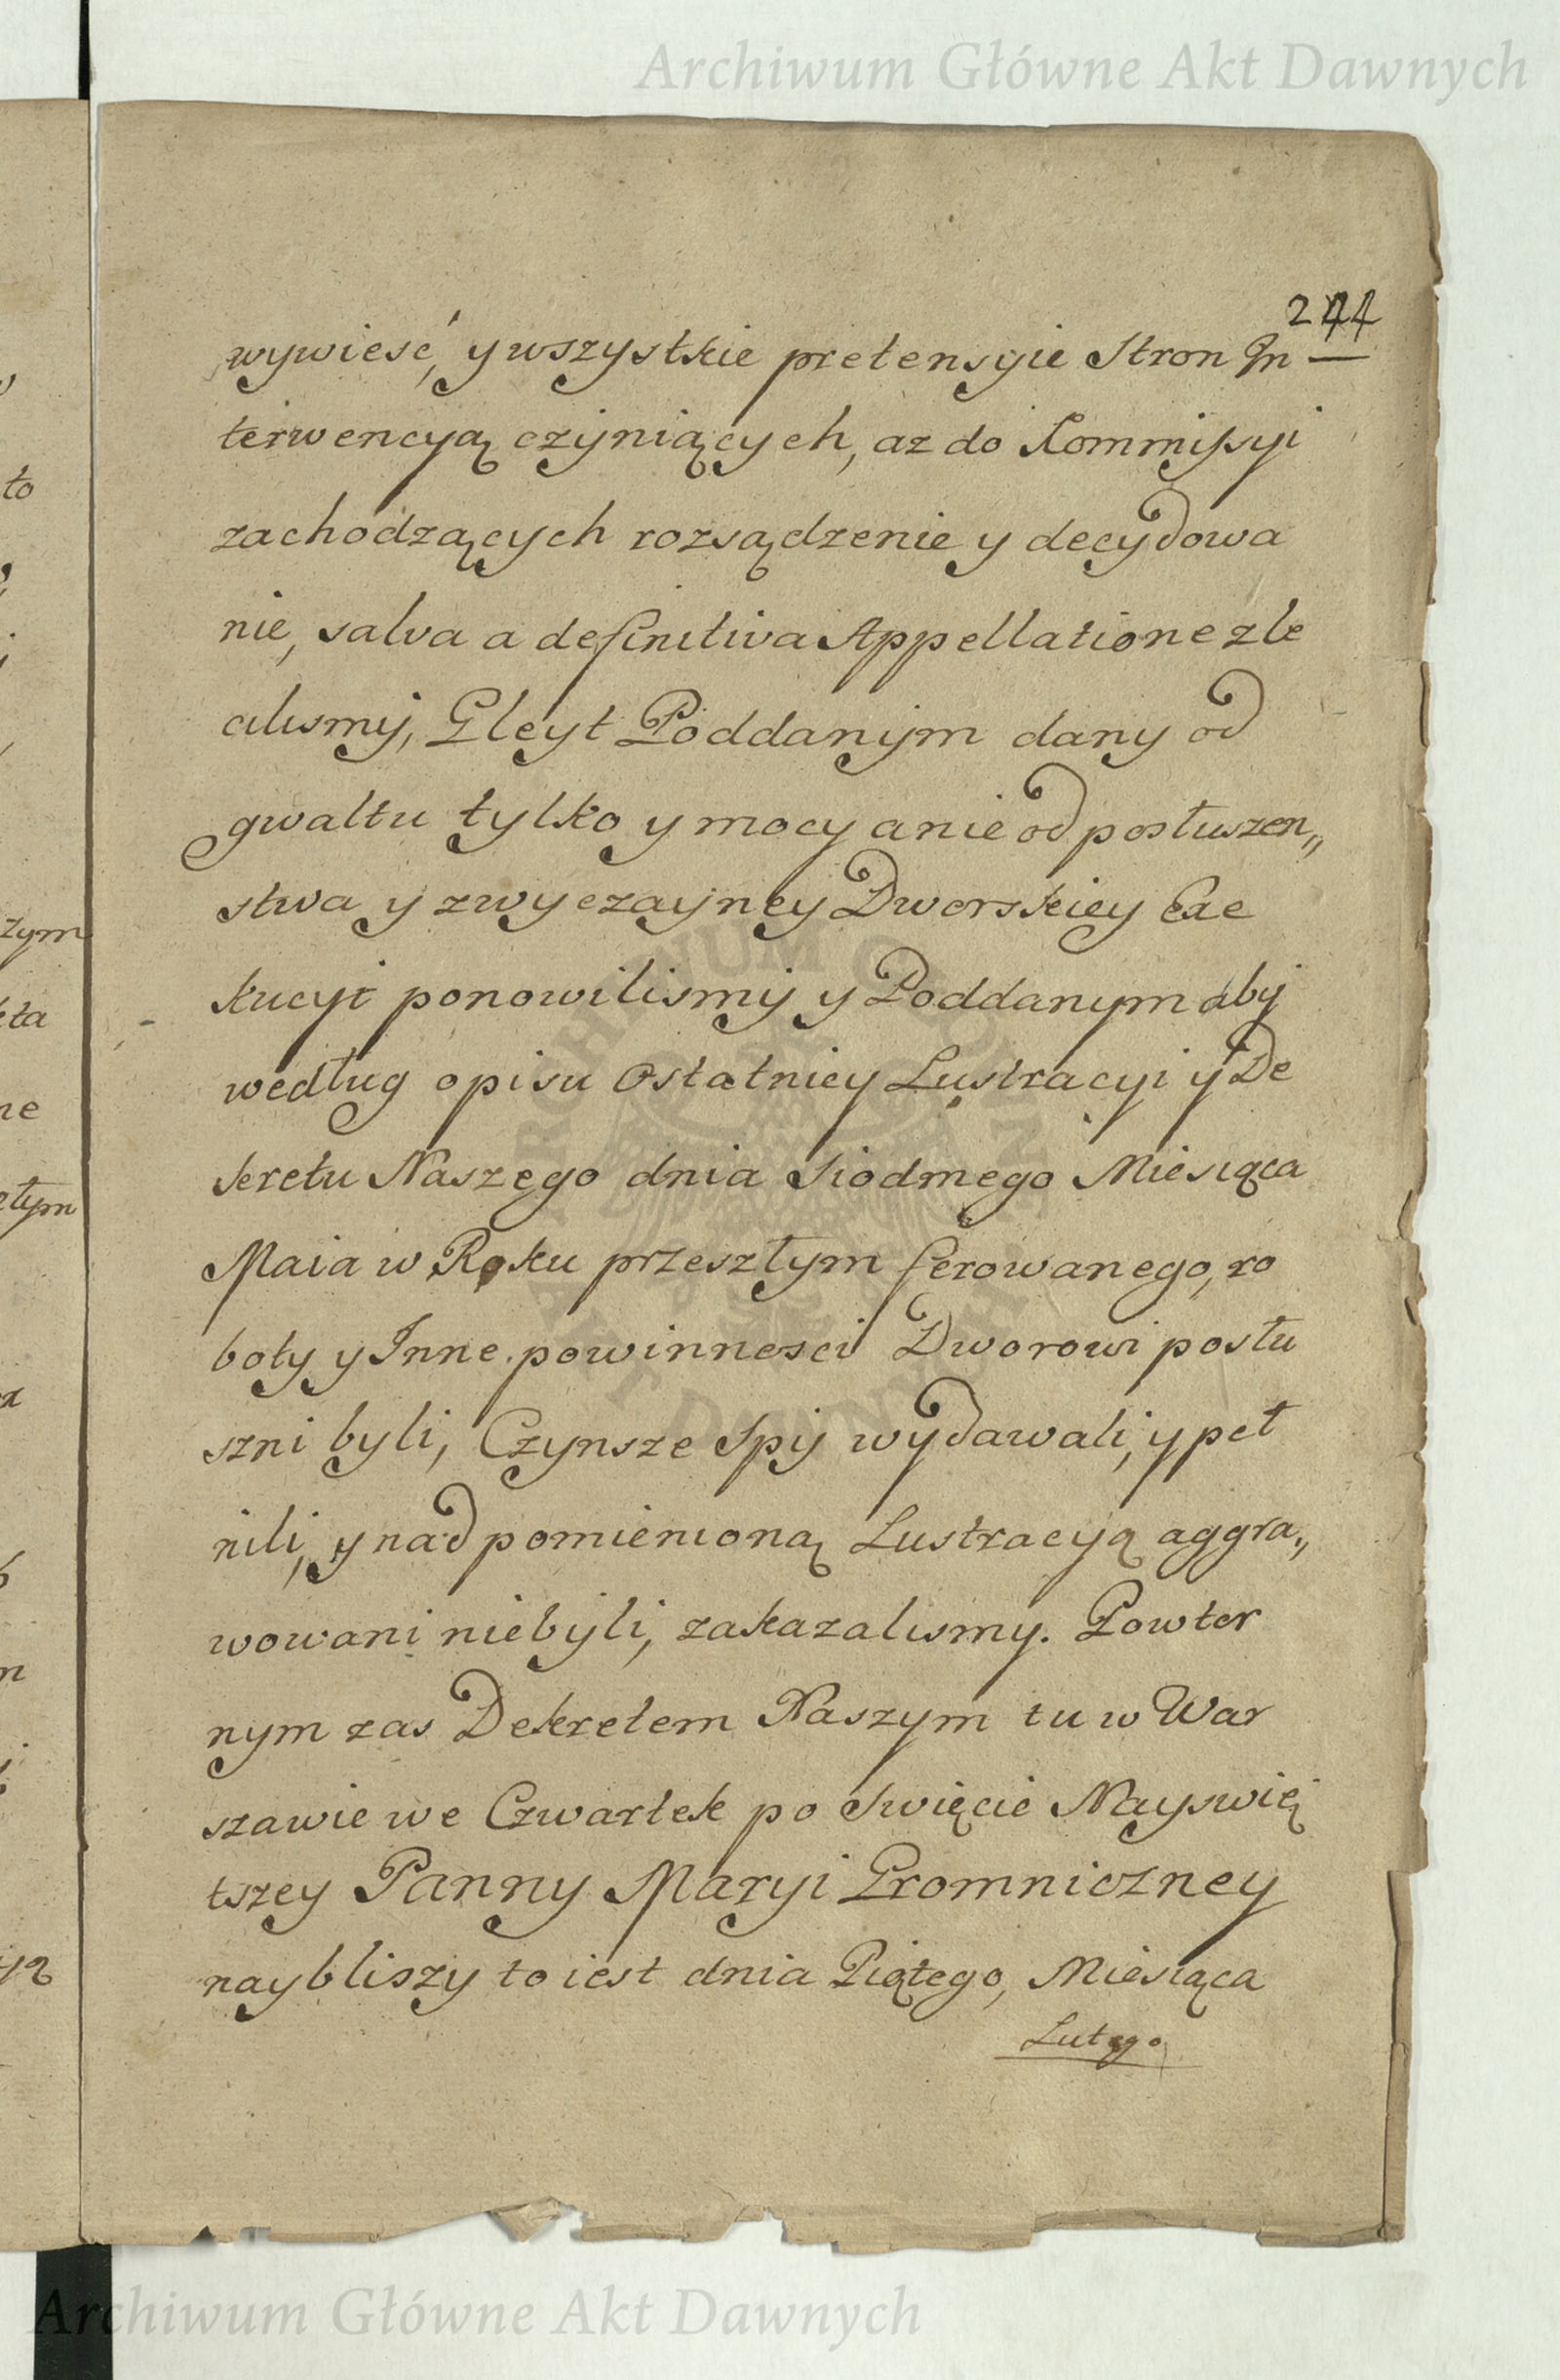 Archiwum Główne Akt Dawnych
244
wywiesć, y wszystkie pretensyie Stron In
terwencyą czyniących, az do Kommissyi
zachodzących rozsądzenie y decydowa
nie, salva a definitiva Appellatione zle
cilismy, Gleyt Poddanym dany od
gwałtu tylko y mocy a nie od posłuszen„
stwa y zwyczayney Dworskiey Exe
kucyi ponowilismy y Poddanym aby
według opisu Ostatniey Lustracyi y De
kretu Naszego dnia Siodmego Miesiąca
Maia w Roku przeszłym ferowanego, ro
boty y Inne powinnosci Dworowi posłu
szni byli, Czynsze Spij wydawali, y peł
nili, y nad pomienioną Lustracyą aggra„
wowani niebyli, zakazalismy. Powtor
nym zas Dekretem Naszym tu w War
szawie we Czwartek po Swięcie Nayswię
tszey Panny Maryi Gromniczney
naybliszy to iest dnia Piątego, Miesiąca
Lutego
to
zym
ta
ne
ztym
Archiwum Główne Akt Dawnych